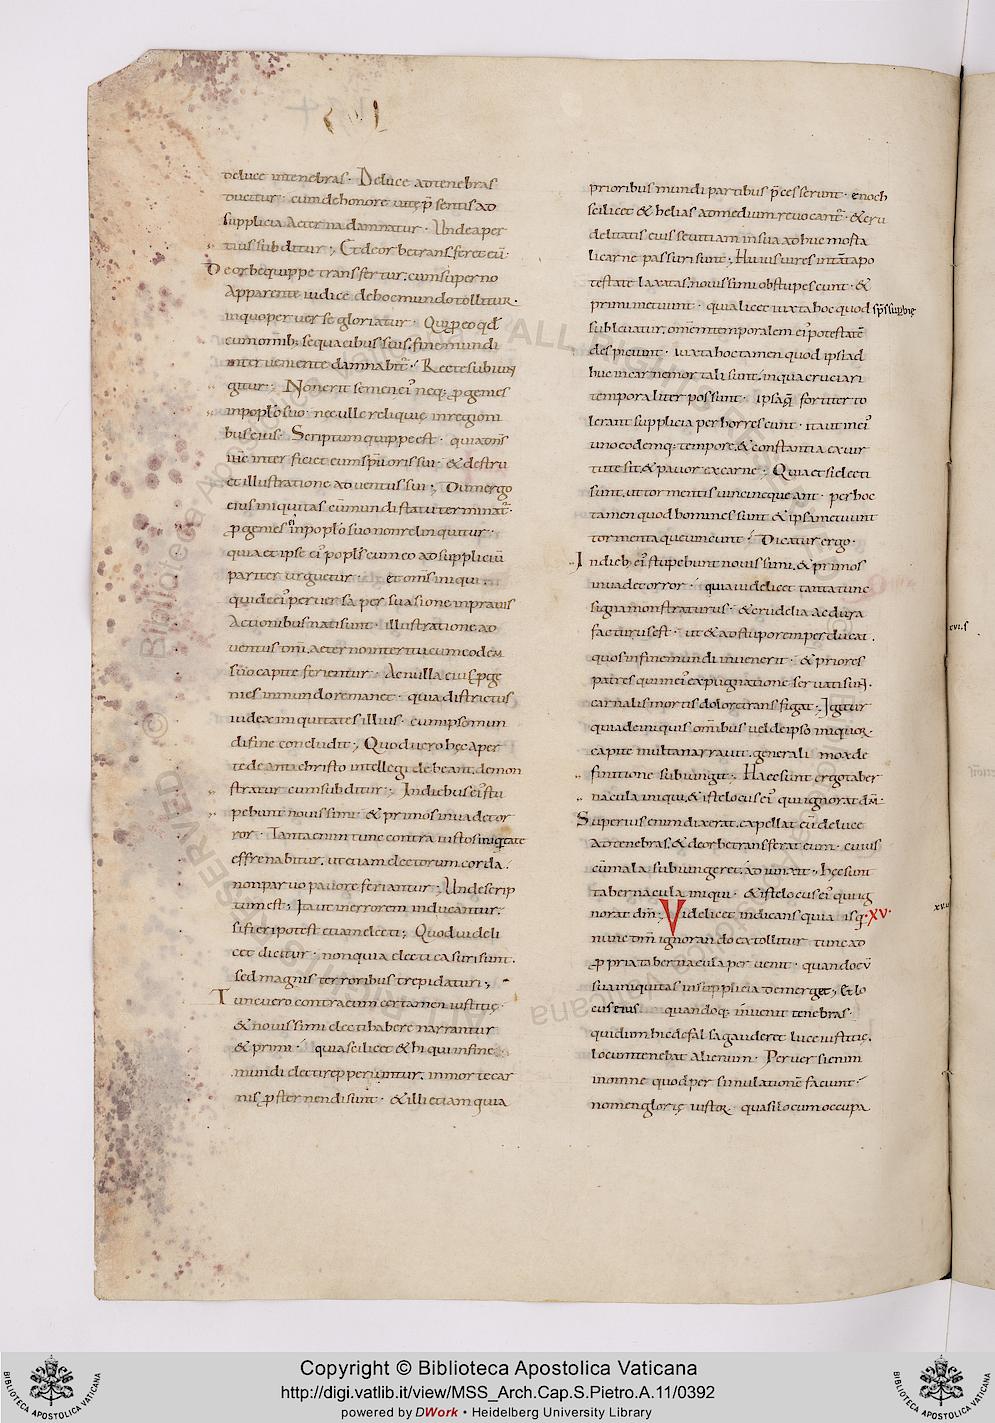 de luce in tenebras· De luce ad tenebras
ducitur· cum de honore uitę p̄sentis ad
supplicia aeterna damnatur· Unde aper
tius subditur; Et de orbe transferet eū·
De orbe quippe transfertur. cum superno
apparente iudice de hoc mundo tollitur·
in quo peruerse gloriatur· Qui p eo qđ
cum omnib; sequacibus suis. fine mundi
interueniente damnabitr̄· Recte subiun
gitur; Non erit semen ei᾽ neq; progenies
in poplo suo· nec ullę reliquię in regioni
bus eius· Scriptum quippe est· quia dn̄s
iħc interficiet eum sp̄u oris sui· & destru
et illustratione aduentus sui; Dum ergo
eius iniquitas cū mundi statu terminat᾽·
progenies ei᾽ in poplo suo non relinquitur·
quia et ipse & popl̄s cum eo ad suppliciū
pariter urguetur· et om̄s iniqui·
qui de ei᾽ peruersa persuasione in prauis
actionibus nati sunt· illustratione ad
uentus dn̄i. aeterno interitu cum eodē
suo capite ferientur· Ac nulla ei᾽ proge
nies in mundo remanet· quia districtus
iudex iniquitates illius· cum ipso mun
di fine concludit; Quod uero hęc aper
te de antichristo intellegi debeant. demon
stratur cum subditur; In diebus ei᾽ stu
pebunt nouissimi· & primos inuadet or
ror· Tanta enim tunc contra iustos iniquitate
effrenabitur. ut etiam electorum corda·
non paruo pauore feriantur; Unde scrip
tum est; Ita ut in errorem inducantur·
si fieri potest etiam electi; Quod uideli
cet dicitur· non quia electi casuri sunt·
sed magnis terroribus trepidaturi;
Tunc uero contra eum certamen iustitię·
& nouissimi electi habere narrantur
& primi· quia scilicet & hi qui in fine
mundi electi repperiuntur. in morte car
nis prosternendi sunt· & illi etiam qui a
prioribus mundi partibus p̄cesserunt· enoch
scilicet & helias ad medium reuocantr̄· & cru
delitatis eius seuitiam in sua adhuc morta
li carne passuri sunt; Huius uires in tāta po
testate laxatas. nouissimi obstupescunt· &
primi metuunt· quia licet iuxta hoc quod sp̄s supbię
subleuatur. omnem temporalem ei᾽ potestatē
despiciunt· iuxta hoc tamen quod ipsi ad
huc in carne mortali sunt. in qua cruciari
temporaliter possunt· ipsa quę fortiter to
lerant supplicia perhorrescunt· ita ut in ei᾽
uno eodemq; tempore. & constantia ex uir
tute sit. & pauor ex carne; Quia et si electi
sunt. ut tormentis uinci nequeant· per hoc
tamen quod homines sunt & ipsa metuunt
tormenta que uincunt; Dicatur ergo·
In dieb; ei᾽ stupebunt nouissimi. & primos
inuadet orror· quia uidelicet tanta tunc
signa monstraturus· & crudelia ac dura
facturus est· ut & ad stuporem perducat·
quos in fine mundi inuenerit· & priores
patres qui in ei᾽ expugnatione seruati sun̄t·
carnalis mortis dolore transfigat; Igitur
quia de iniquis om̄ibus uel de ipso iniquor·
capite multa narrauit. generali mox de
finitione subiungit; Haec sunt ergo taber
nacula iniqui. & iste locus ei᾽ qui ignorat dm̄·
Superius enim dixerat. expellet eū de luce
ad tenebras. & de orbe transferet eum· cuius
cū mala subiungeret. adiunxit; hęc sunt
tabernacula iniqui· & iste locus ei᾽ qui ig
norat dm̄; Videlicet indicans quia isq· XV·
nunc dm̄ ignorando extollitur· tunc ad
propria tabernacula peruenit· quando eū
sua iniquitas in supplicia demerget; Et lo
cus eius· quandoq; inuenit tenebras·
qui dum hic de falsa gauderet luce iustitię·
locum tenebat alienum· Peruersi enim
in omne quod per simulationē faciunt·
nomen glorię iustor· quasi locum occupa
Copyright © Biblioteca Apostolica Vaticana
http://digi.vatlib.it/view/MSS_Arch.Cap.S.Pietro.A.11/0392
powered by DWork • Heidelberg University Library